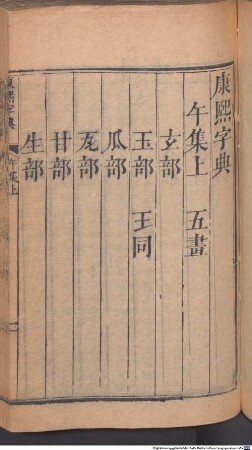 康熙字典
午集上 五畫
玄部
玉部 王同
瓜部
瓦部
甘部
生部
康熙字典 午集上